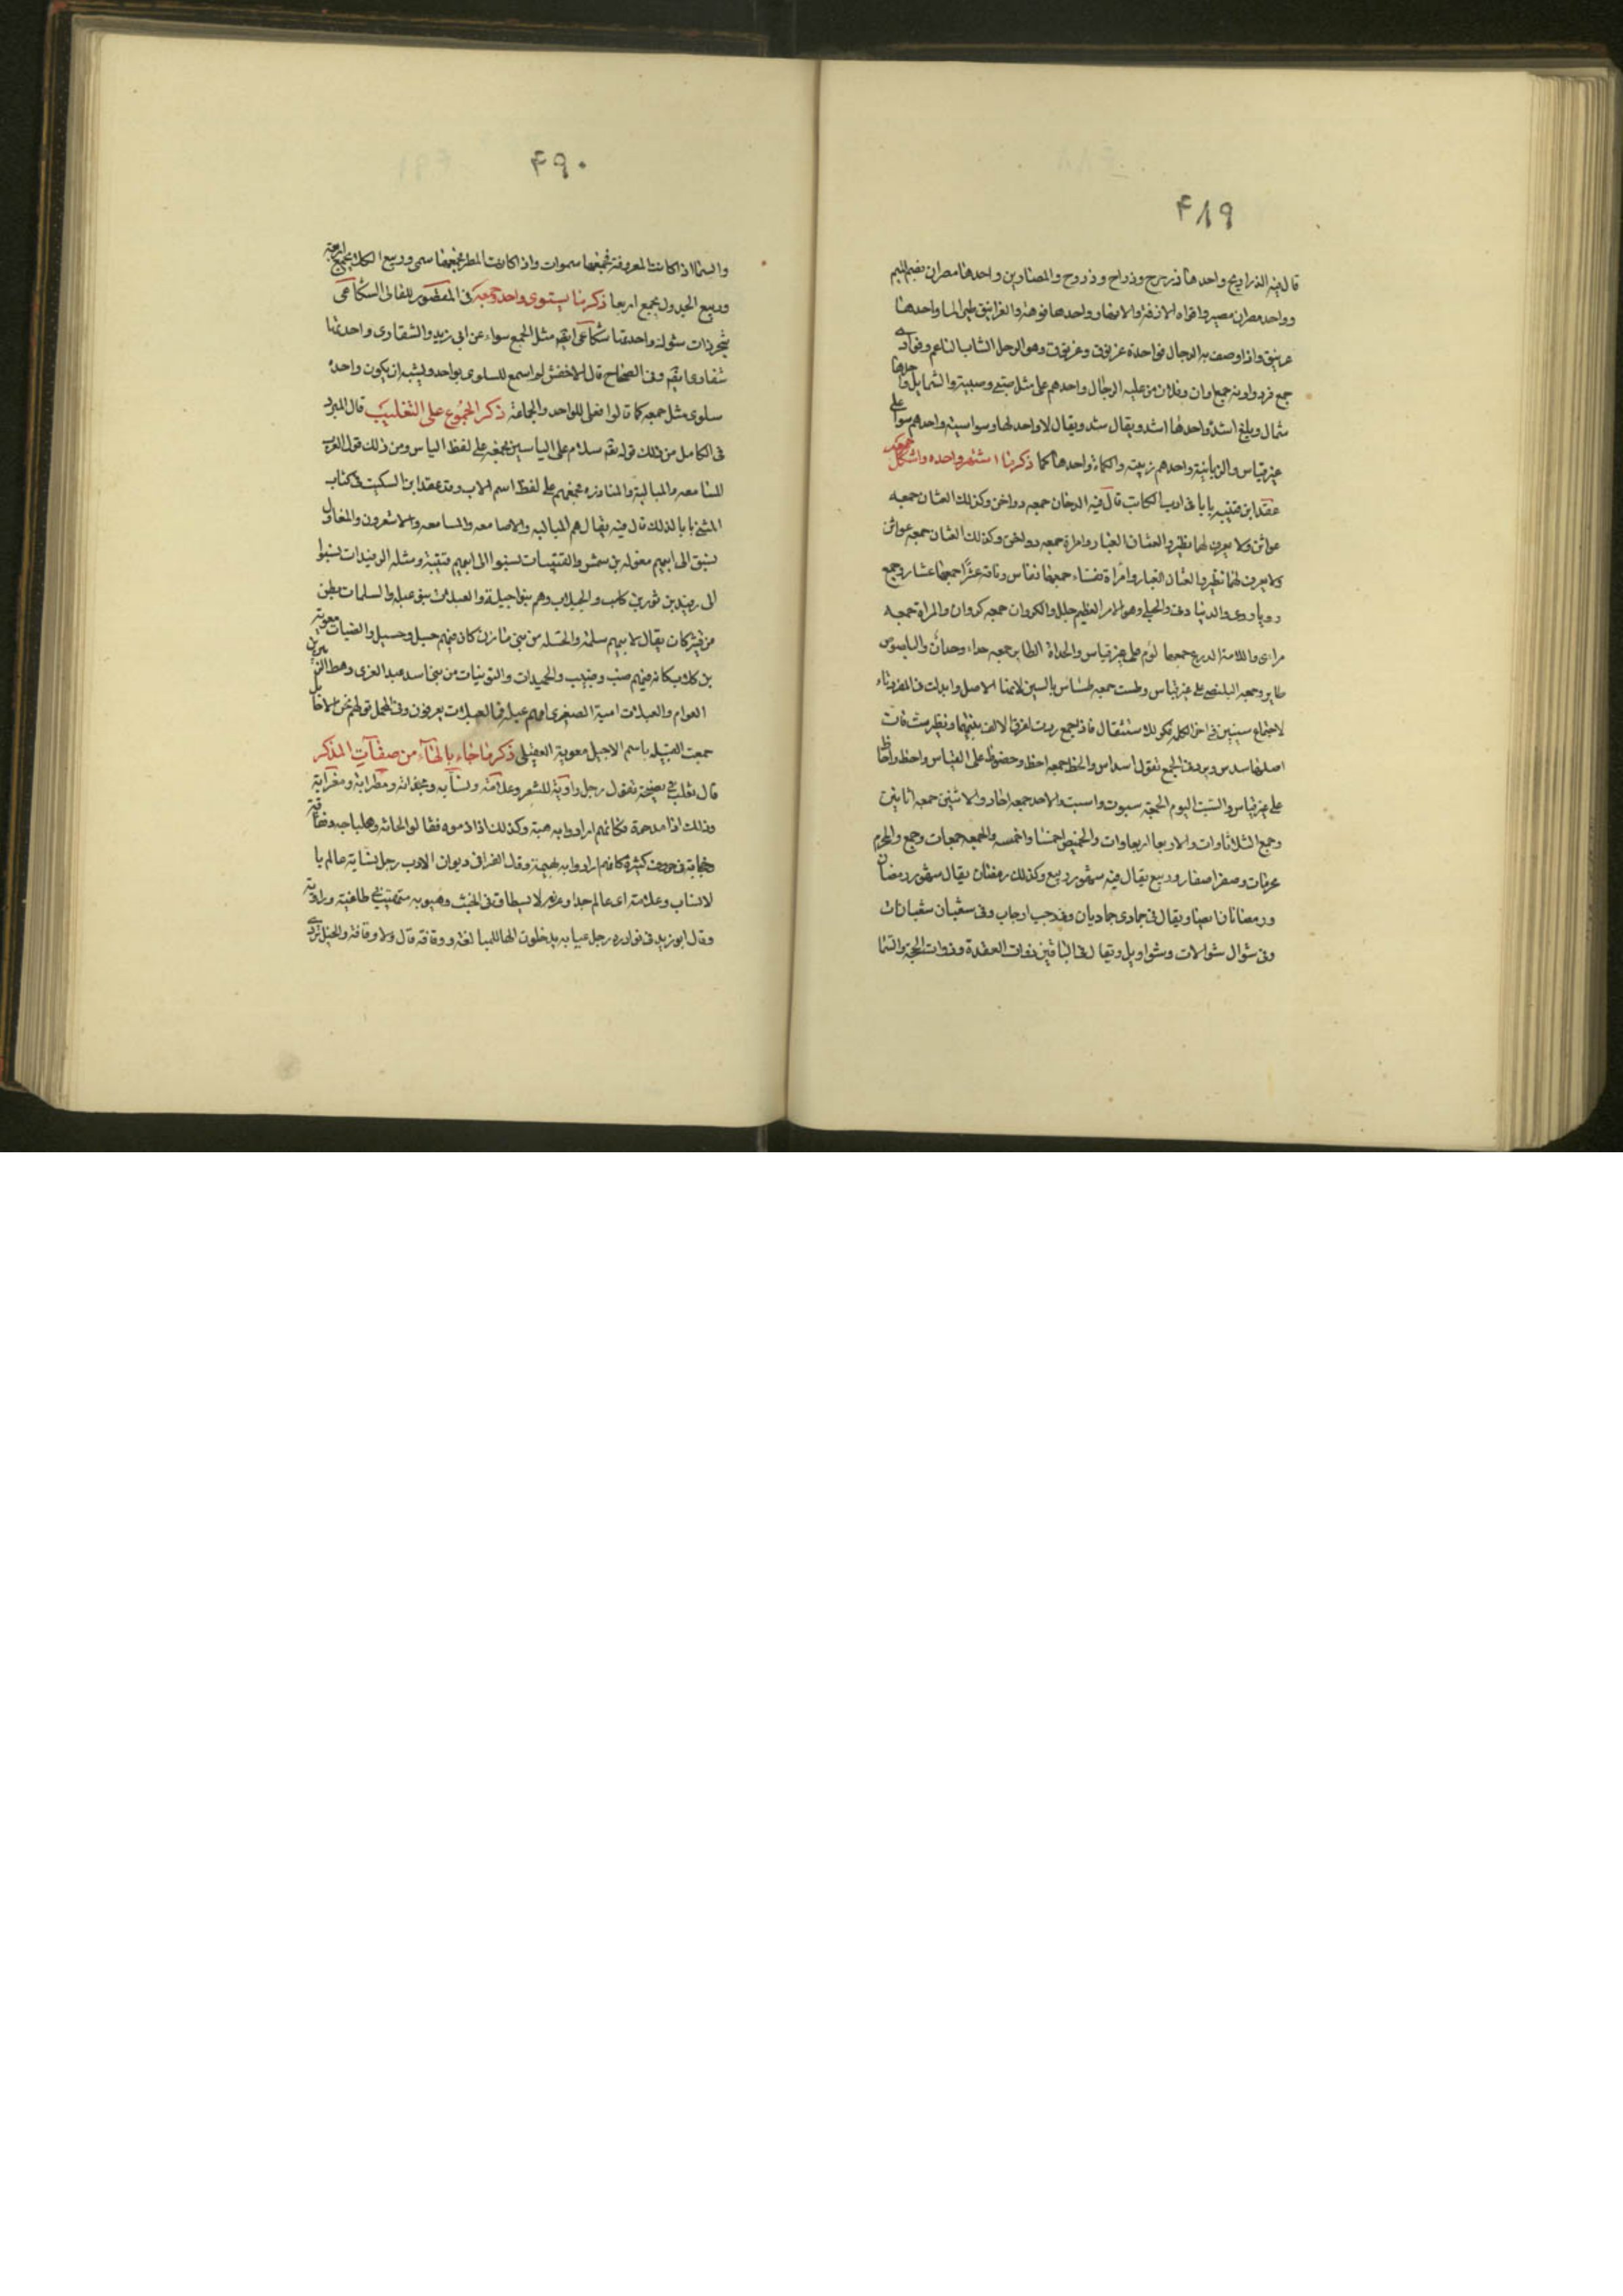 ۴۸۹
قال فيه الذراريح واحدها ذرحرح وذراح وذروح والمصارين واحدها مصران بضم الميم
وواحد مصران مصير وافواه الازقة والانهار واحدها فوهة والغرانيق طير الما واحدها
غرنيق واذا وصف به الرجال فواحدة غرنوق وغرنوق وهو الرجل الشاب الناعم وفرادى
جمع فرد واونة جمع اوان وفلان من علية الرجال واحدهم على مثل صبى وصبية والشمايل واحدها
شمال وبلغ اشده واحدها اشد ويقال شد ويقال لا واحد لها وسواسية واحدهم سوا على
غير قياس والزبانية واحدهم زبينة والكماة واحدها كما ذكر ما اشتهر واحده واشكل جمعه
عقد ابن قتيبه بابا فى ادب الكاتب قال فيه الدخان جمعه دواخن وكذلك العثان جمعه
عواثن ولا يعرف لهما نظير والعثان الغبار وامراة جمعه دواخن وكذلك العثان جمعه عواثن
ولا يعرف لهما نظير والعثان الغبار وامراة نفساء جمعها نفاس وناقة عشرا جمعها عشار وجمع
رويا روى والدنيا دنى والجلى وهو الامر العظيم جلل والكروان جمعه كروان والمراة جمعه
مراءى واللامة الدرع جمعها لوم على غير قياس والحداة الطاير جمعه حداء وحدان والبلصوص
طاير وجمعه البلنصى على غير قياس وطست جمعه طساس بالسين لانها الاصل وابدلت فى المفرد تاء
لاجتماع سينين فى اخر الكلمة فكره للاستثقال فاذا جمع ردت لفرق الالف بينهما ونظير ست فان
اصلها سدس ويرد فى الجمع تقول اسداس والحظ جمعه احظ وحضوظ على القياس واحظ واحاظ
على غير قياس والسبت اليوم الجمعة سبوت واسبت والاحد جمعه احاد والاثنين جمعه اثانين
وجمع الثلاثاوات والاربعا اربعاوات والخميس اخمسا واخمسه والجمعه جمعات وجمع والمحرم
محرمات وصفر اصفار وربيع يقال فيه شهور ربيع وكذلك رمضان يقال شهور رمضان
ورمضانات ايضا ويقال فى جمادى جماديات وفى رجب ارجاب وفى شعبان شعبانات
وفى شوال شوالات وشواويل ويقال فى الباقين ذوات القعدة وذوات الحجة والسما
۴۹۰
والسما اذا كانت المعروفة فجمعها سموات واذا كانت المطر فجمعها سمى وربيع الكلا يجمع اربعة
وربيع الجدول يجمع اربعا ذكر ما يستوى واحده وجمعه فى المقصور للقالى الشكاعى
شجر ذات شوك واحدتها شكاعى ايضا مثل الجمع سواء عن ابى زيد والشقارى واحدتها
شقارى ايضا وفى الصحاح قال الاخفش لم اسمع للسلوى بواحد ويشبه ان يكون واحده
سلوى مثل جمعه كما قالوا دفلى للواحد والجماعة ذكر الجموع على التغليب قال المبرد
فى الكامل من ذلك قوله تعالى سلام على الياسين فجمعه على لفظ الياس ومن ذلك قول العرب
المسامعه والمهالبة والمناذره فجمعهم على لفظ اسم الاب وقد عقد ابن السكيت فى كتاب
المثنى بابا لذلك قال فيه يقال هم المهالبه والاصامعه والمسامعه والاشعرون والمعاول
نسبوا الى ابيهم معوله بن شمس والقتيبات نسبوا الى ابيهم قتيبة ومثله الرفيدات نسبوا
الى رفيد بن ثور بن كلب والجبلات وهم بنو جبيلة والعبلات بنى عبله والسلمات بطن
من قشر كان يقال لابيهم سلمة والحسله من بنى مازن كان فيهم حسل وحسيل والضبات معوية
بن كلاب كانه فيهم ضب وضبيب والحميدات والتويتات من بنى اسد عبد العزى رهط الزبير بن
العوام والعبلات امية الصغرى امهم عبلة فالعبلات يعرفون وفى المجمل قولهم نحن الاخايل
جمعت القبيله باسم الاخيل معوية العقيلى ذكر ما جاء بالهاء من صفات المذكر
قال ثعلب فى فصيحه تقول رجل راوية للشعر وعلامة ونسابه ومجذامة ومطرابة ومعزابة
وذلك اذا مدحوه فكانهم ارادوا به داهية وكذلك اذا ذموه فقالوا لحانة وهلباجه وفقاقة
وجخابة فى حروف كثيرة كانهم ارادوا به بهيمة وقال الفرابى فى ديوان الادب رجل نسابة عالم با
لانساب وعلامة اى عالم جدا وعرنه لا يطاق فى الخبث وهيوبه متهيب طاغية وراوية
وقال ابوزيد فى نوادره رجل عيابه يدخلون الها للمبالغة ووقافة قال ولا وقافة والخيل تردى